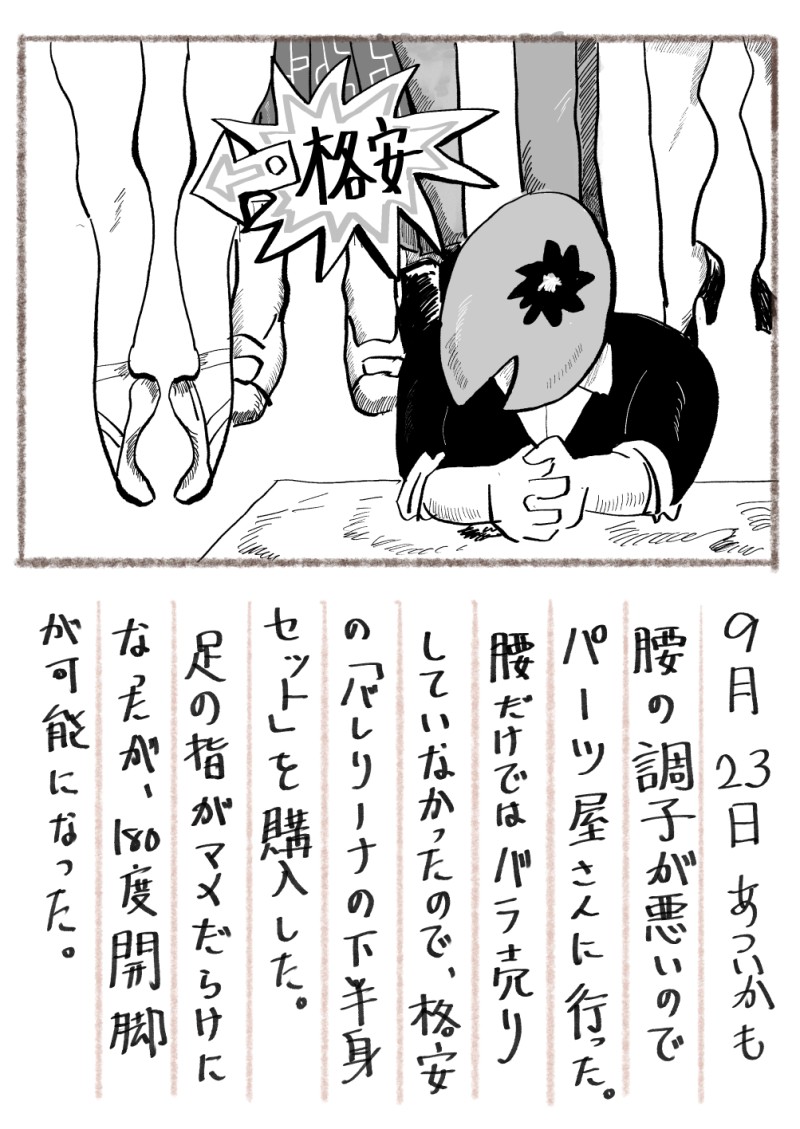 格安
9月23日 あついかも
腰の調子が悪いので
パーツ屋さんに行った。
腰だけではバラ売り
していなかったので、格安
の「バレリーナの下半身
セット」を購入した。
足の指がマメだらけに
なったが、180度開脚
が可能になった。